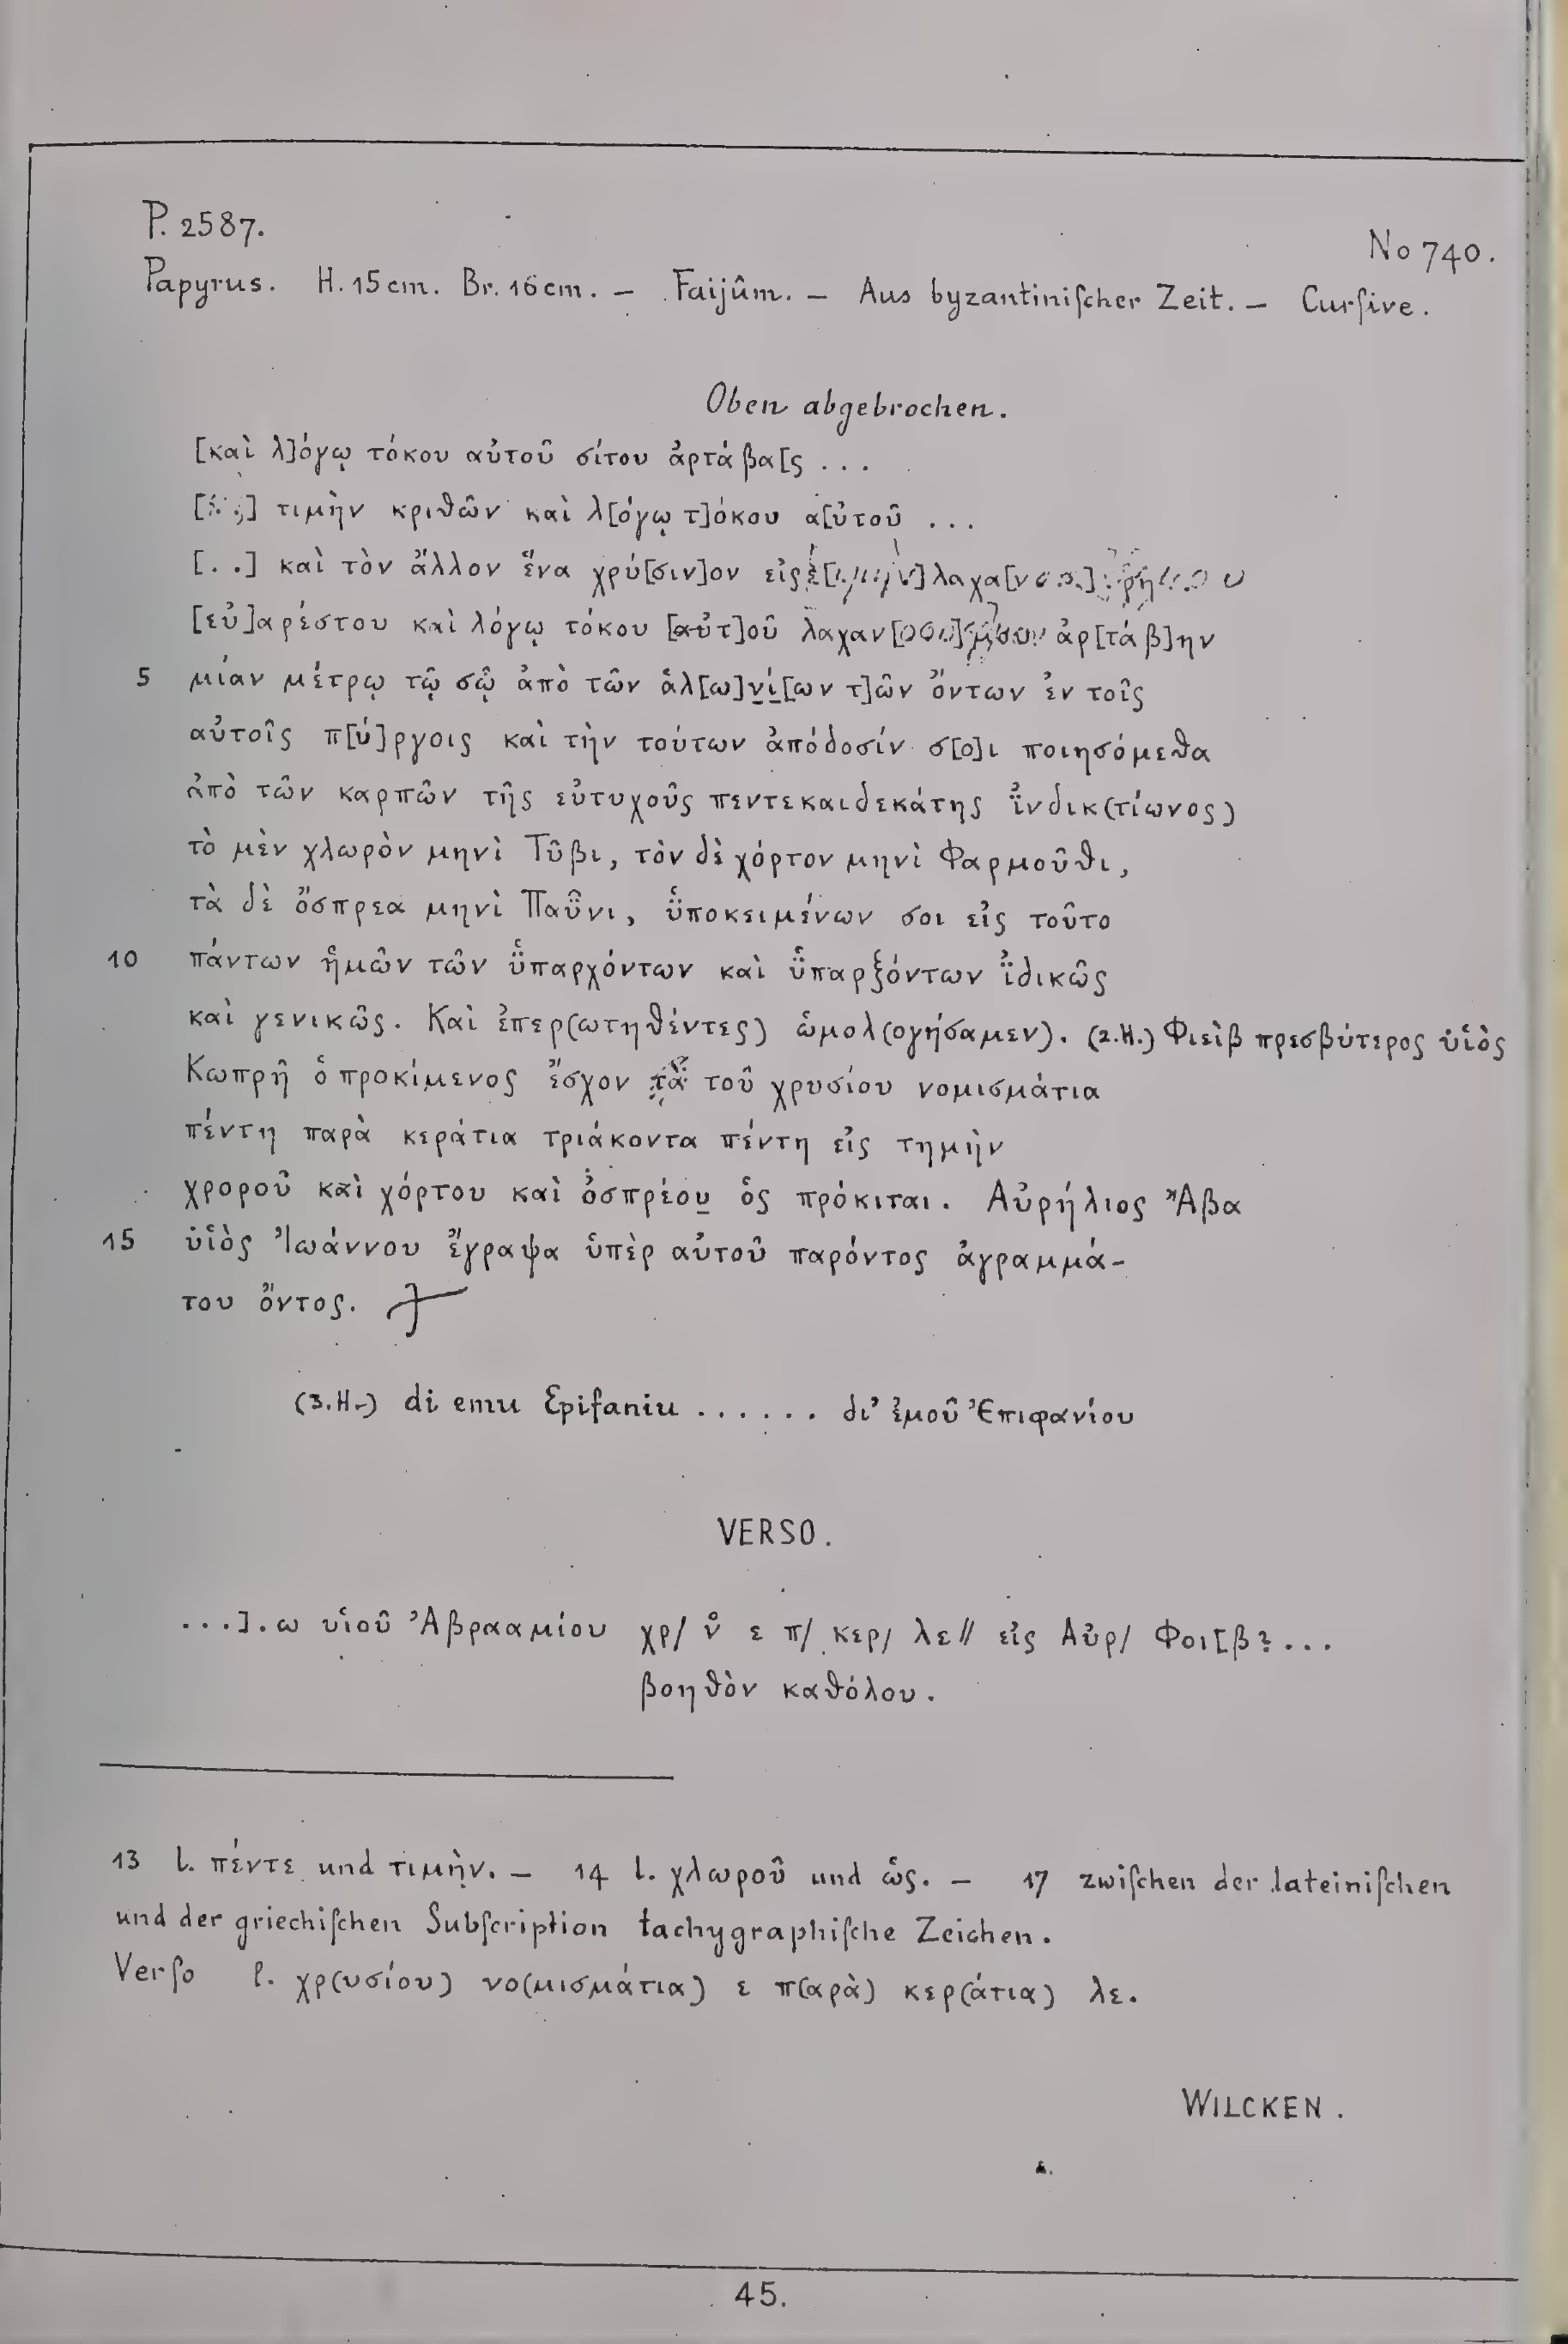 P. 2587.
No 740.
Papyrus. H. 15 cm. Br. 16 cm. – Faijûm. – Aus byzantiniſcher Zeit. – Curſive.
Oben abgebrochen.
[καὶ λ]όγῳ τόκου αὐτοῦ σίτου ἀρτάβα[ς ...
τιμὴν κριθῶν καὶ λ[όγῳ τ]όκου α[ὐτοῦ ...
[. .] καὶ τὸν ἄλλον ἕνα χρύ[σιν]ον εἰς
[εὐ]αρέστου καὶ λόγῳ τόκου [αὐτ]οῦ ἀρ[τάβ]ην
5 μίαν μέτρῳ τῷ σῷ ἀπὸ τῶν ἁλ[ω]ν̲ί̲[ων τ]ῶν ὄντων ἐν τοῖς
αὐτοῖς π[ύ]ργοις καὶ τὴν τούτων ἀπόδοσίν σ[ο]ι ποιησόμεθα
ἀπὸ τῶν καρπῶν τῆς εὐτυχοῦς πεντεκαιδεκάτης ἰ̈νδικ(τίωνος)
τὸ μὲν χλωρὸν μηνὶ Τῦβι, τὸν δὲ χόρτον μηνὶ Φαρμοῦθι,
τὰ δὲ ὄσπρεα μηνὶ Παῧνι, ὑ̈ποκειμένων σοι εἰς τοῦτο
10 πάντων ἡμῶν τῶν ὑ̈παρχόντων καὶ ὑ̈παρξόντων ἰ̈δικῶς
καὶ γενικῶς. Καὶ ἐπερ(ωτηθέντες) ὡμολ(ογήσαμεν). (2.H.) Φιεὶβ πρεσβύτερος ὑἱὸς
Κωπρῆ ὁ προκίμενος ἔσχον τὰ τοῦ χρυσίου νομισμάτια
πέντη παρὰ κεράτια τριάκοντα πέντη εἰς τημὴν
χροροῦ καὶ χόρτου καὶ ὀσπρέου̲ ὁς πρόκιται. Αὐρήλιος Ἄβα
15 ὑἱὸς Ἰωάννου ἔγραψα ὑπὲρ αὐτοῦ παρόντος ἀγραμμά-
του ὄντος.
(3.H.) di emu Epifaniu ...... δι’ ἐμοῦ Ἐπιφανίου
VERSO.
...].ω υἱοῦ Ἀβρααμίου χρ/ ν̊ ε π/ κερ/ λε// εἰς Αὐρ/ Φοι[β?...
βοηθὸν καθόλου.
13 l. πέντε und τιμὴν. – 14 l. χλωροῦ und ὡς. – 17 zwiſchen der lateiniſchen
und der griechiſchen Subſcription tachygraphiſche Zeichen.
Verſo l. χρ(υσίου) νο(μισμάτια) ε π(αρὰ) κερ(άτια) λε.
WILCKEN.
45.